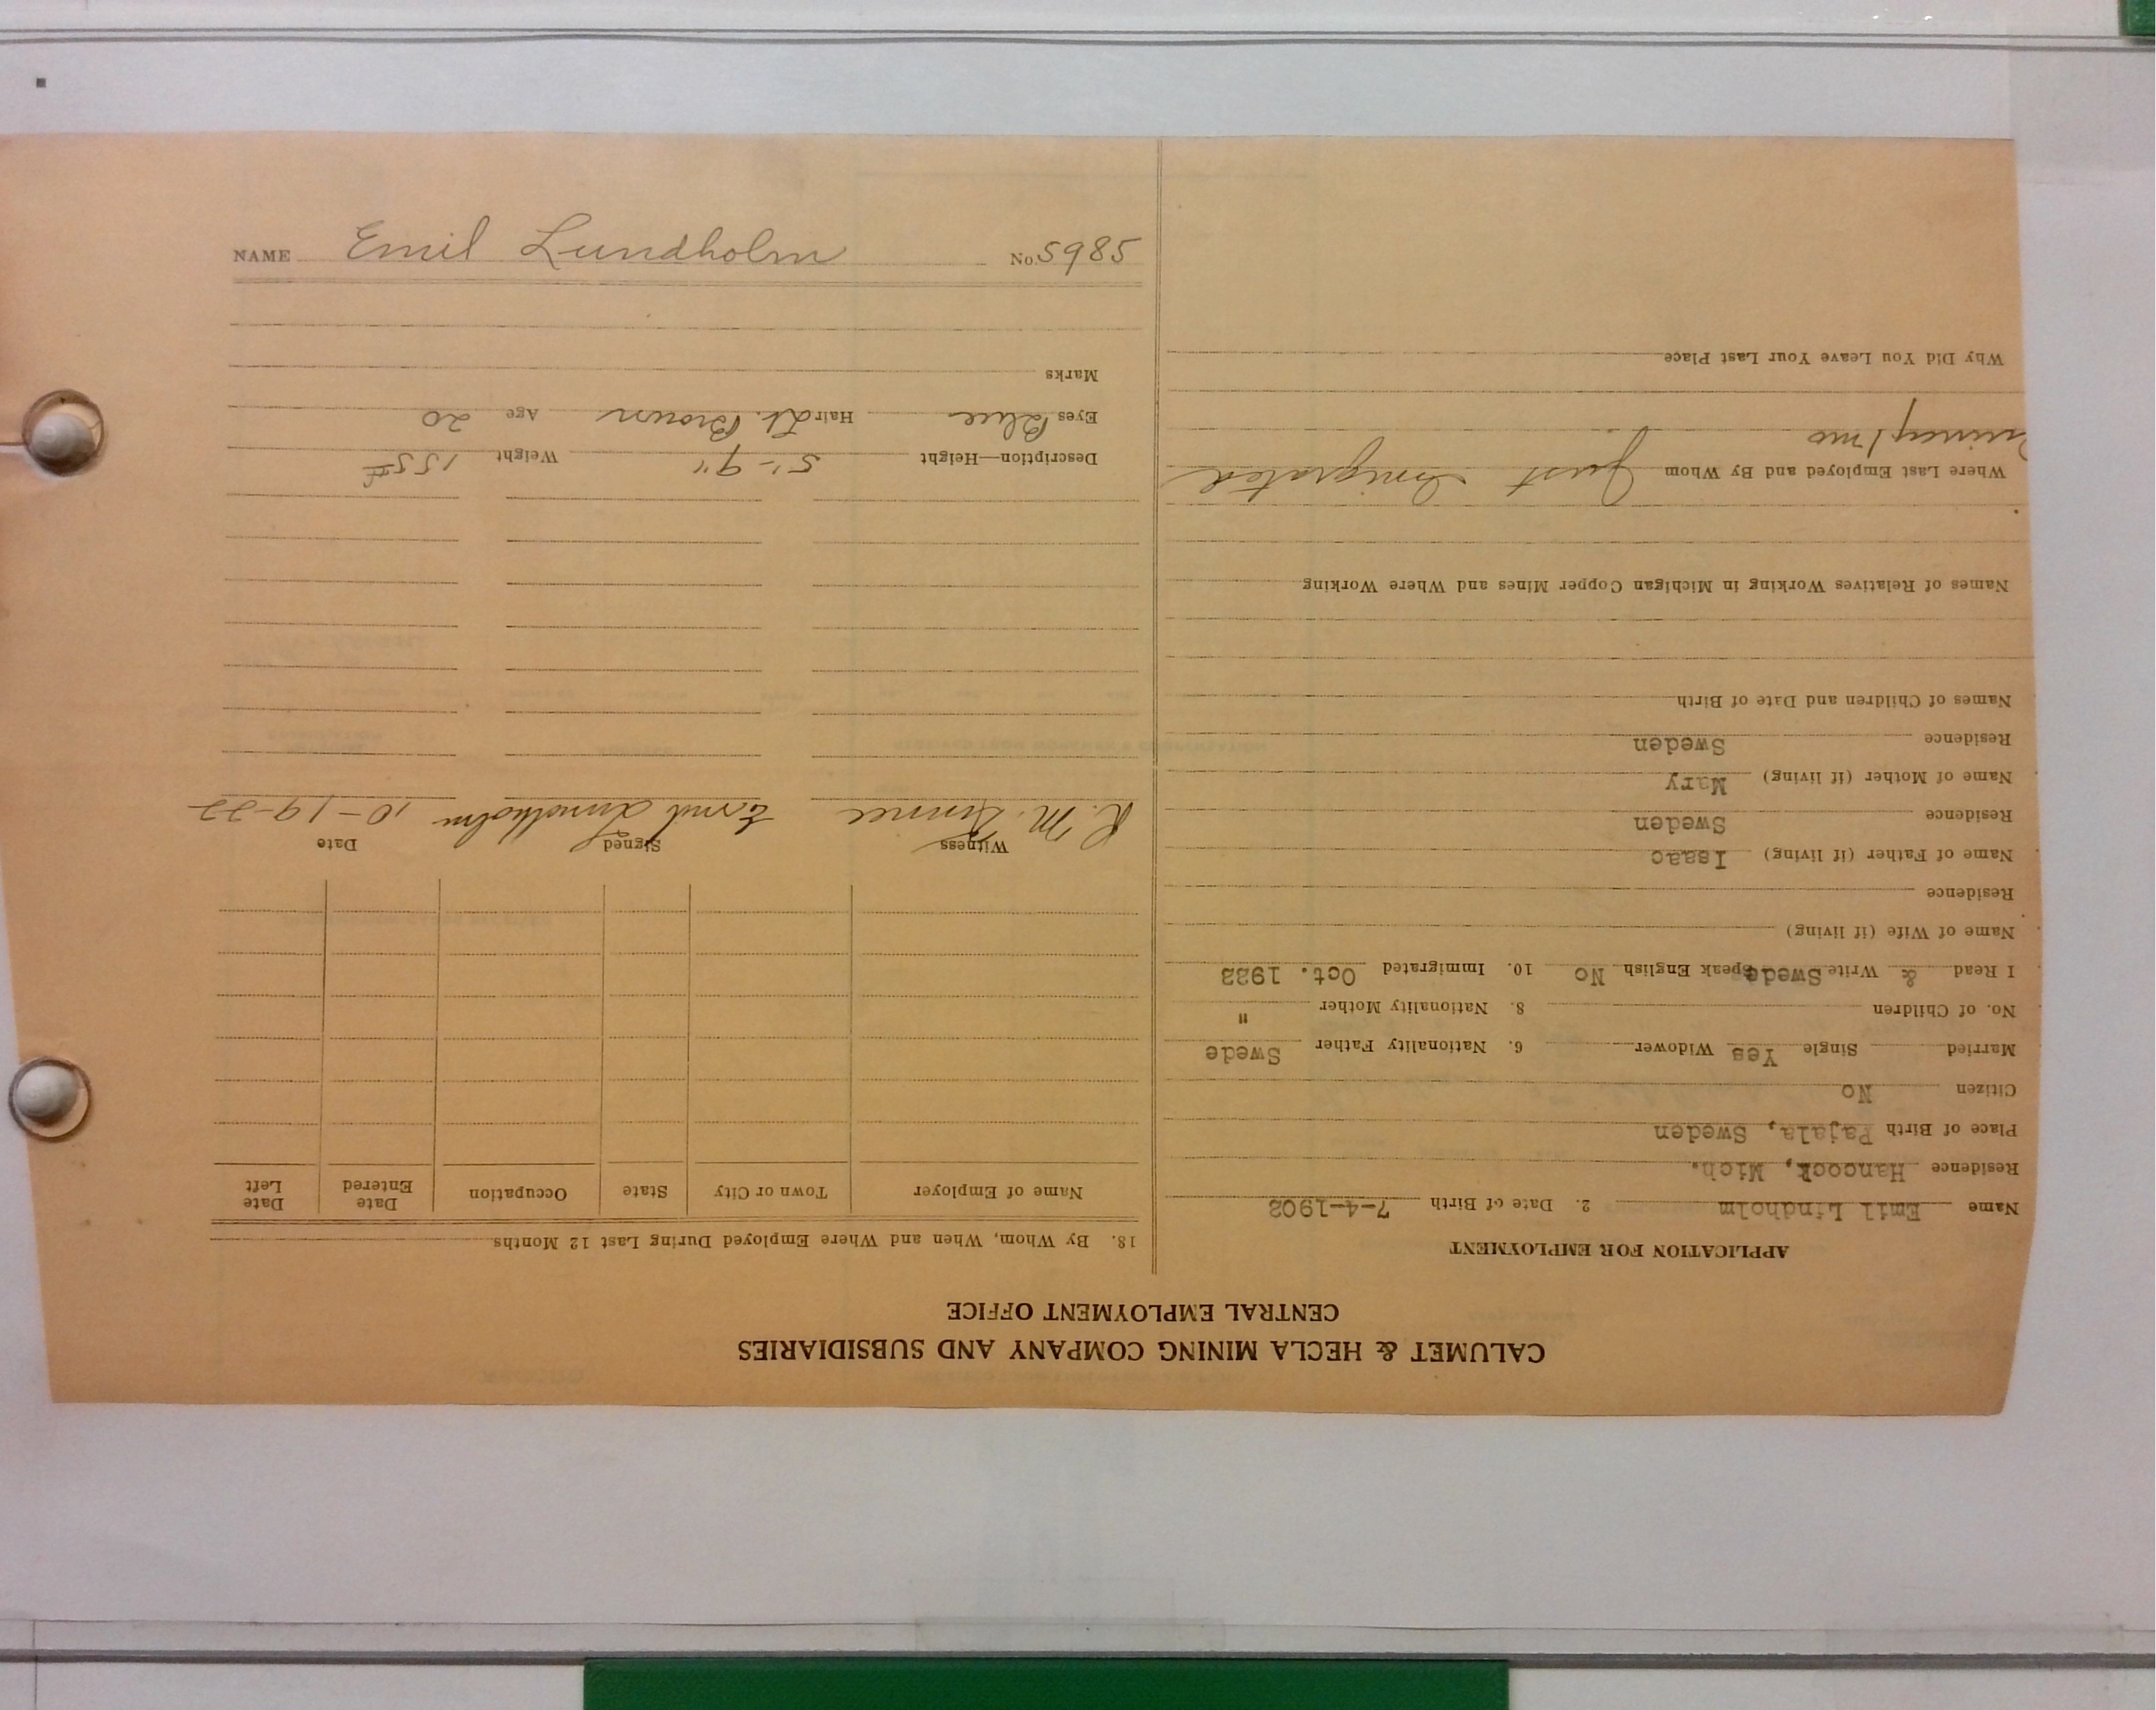 NAME Emil Lundholm No. 5985
CALUMET & HECLA MINING COMPANY AND SUBSIDIARIES
CENTRAL EMPLOYMENT OFFICE
APPLICATION FOR EMPLOYMENT
Name Emil Lindholm 2. Date of Birth 7-4-1902
Residence Hancock, Mich.
Place of Birth Pajala, Sweden
Citizen No
Married Single Yes Widower 6. Nationality Father Swede
No. of Children 8. Nationality Mother "
I Read & Write Swede Speak English No 10. Immigrated Oct. 1922
Name of Wife (if living)
Residence
Name of Father (if living) Isaac
Residence Sweden
Name of Mother (if living) Mary
Residence Sweden
Names of Children and Date of Birth
Names of Relatives Working in Michigan Copper Mines and Where Working
Where Last Employed and By Whom Just Imigrated
Quincy 1 mo
Why Did You Leave Your Last Place
18. By Whom, When and Where Employed During Last 12 Months
Name of Employer Town or City State Occupation Date Entered Date Left
Witness Signed Date
R. M. Emil Lundholm 10-19-22
Description—Height 5'-9" Weight 155#
Eyes Blue Hair Lt. Brown Age 20
Marks